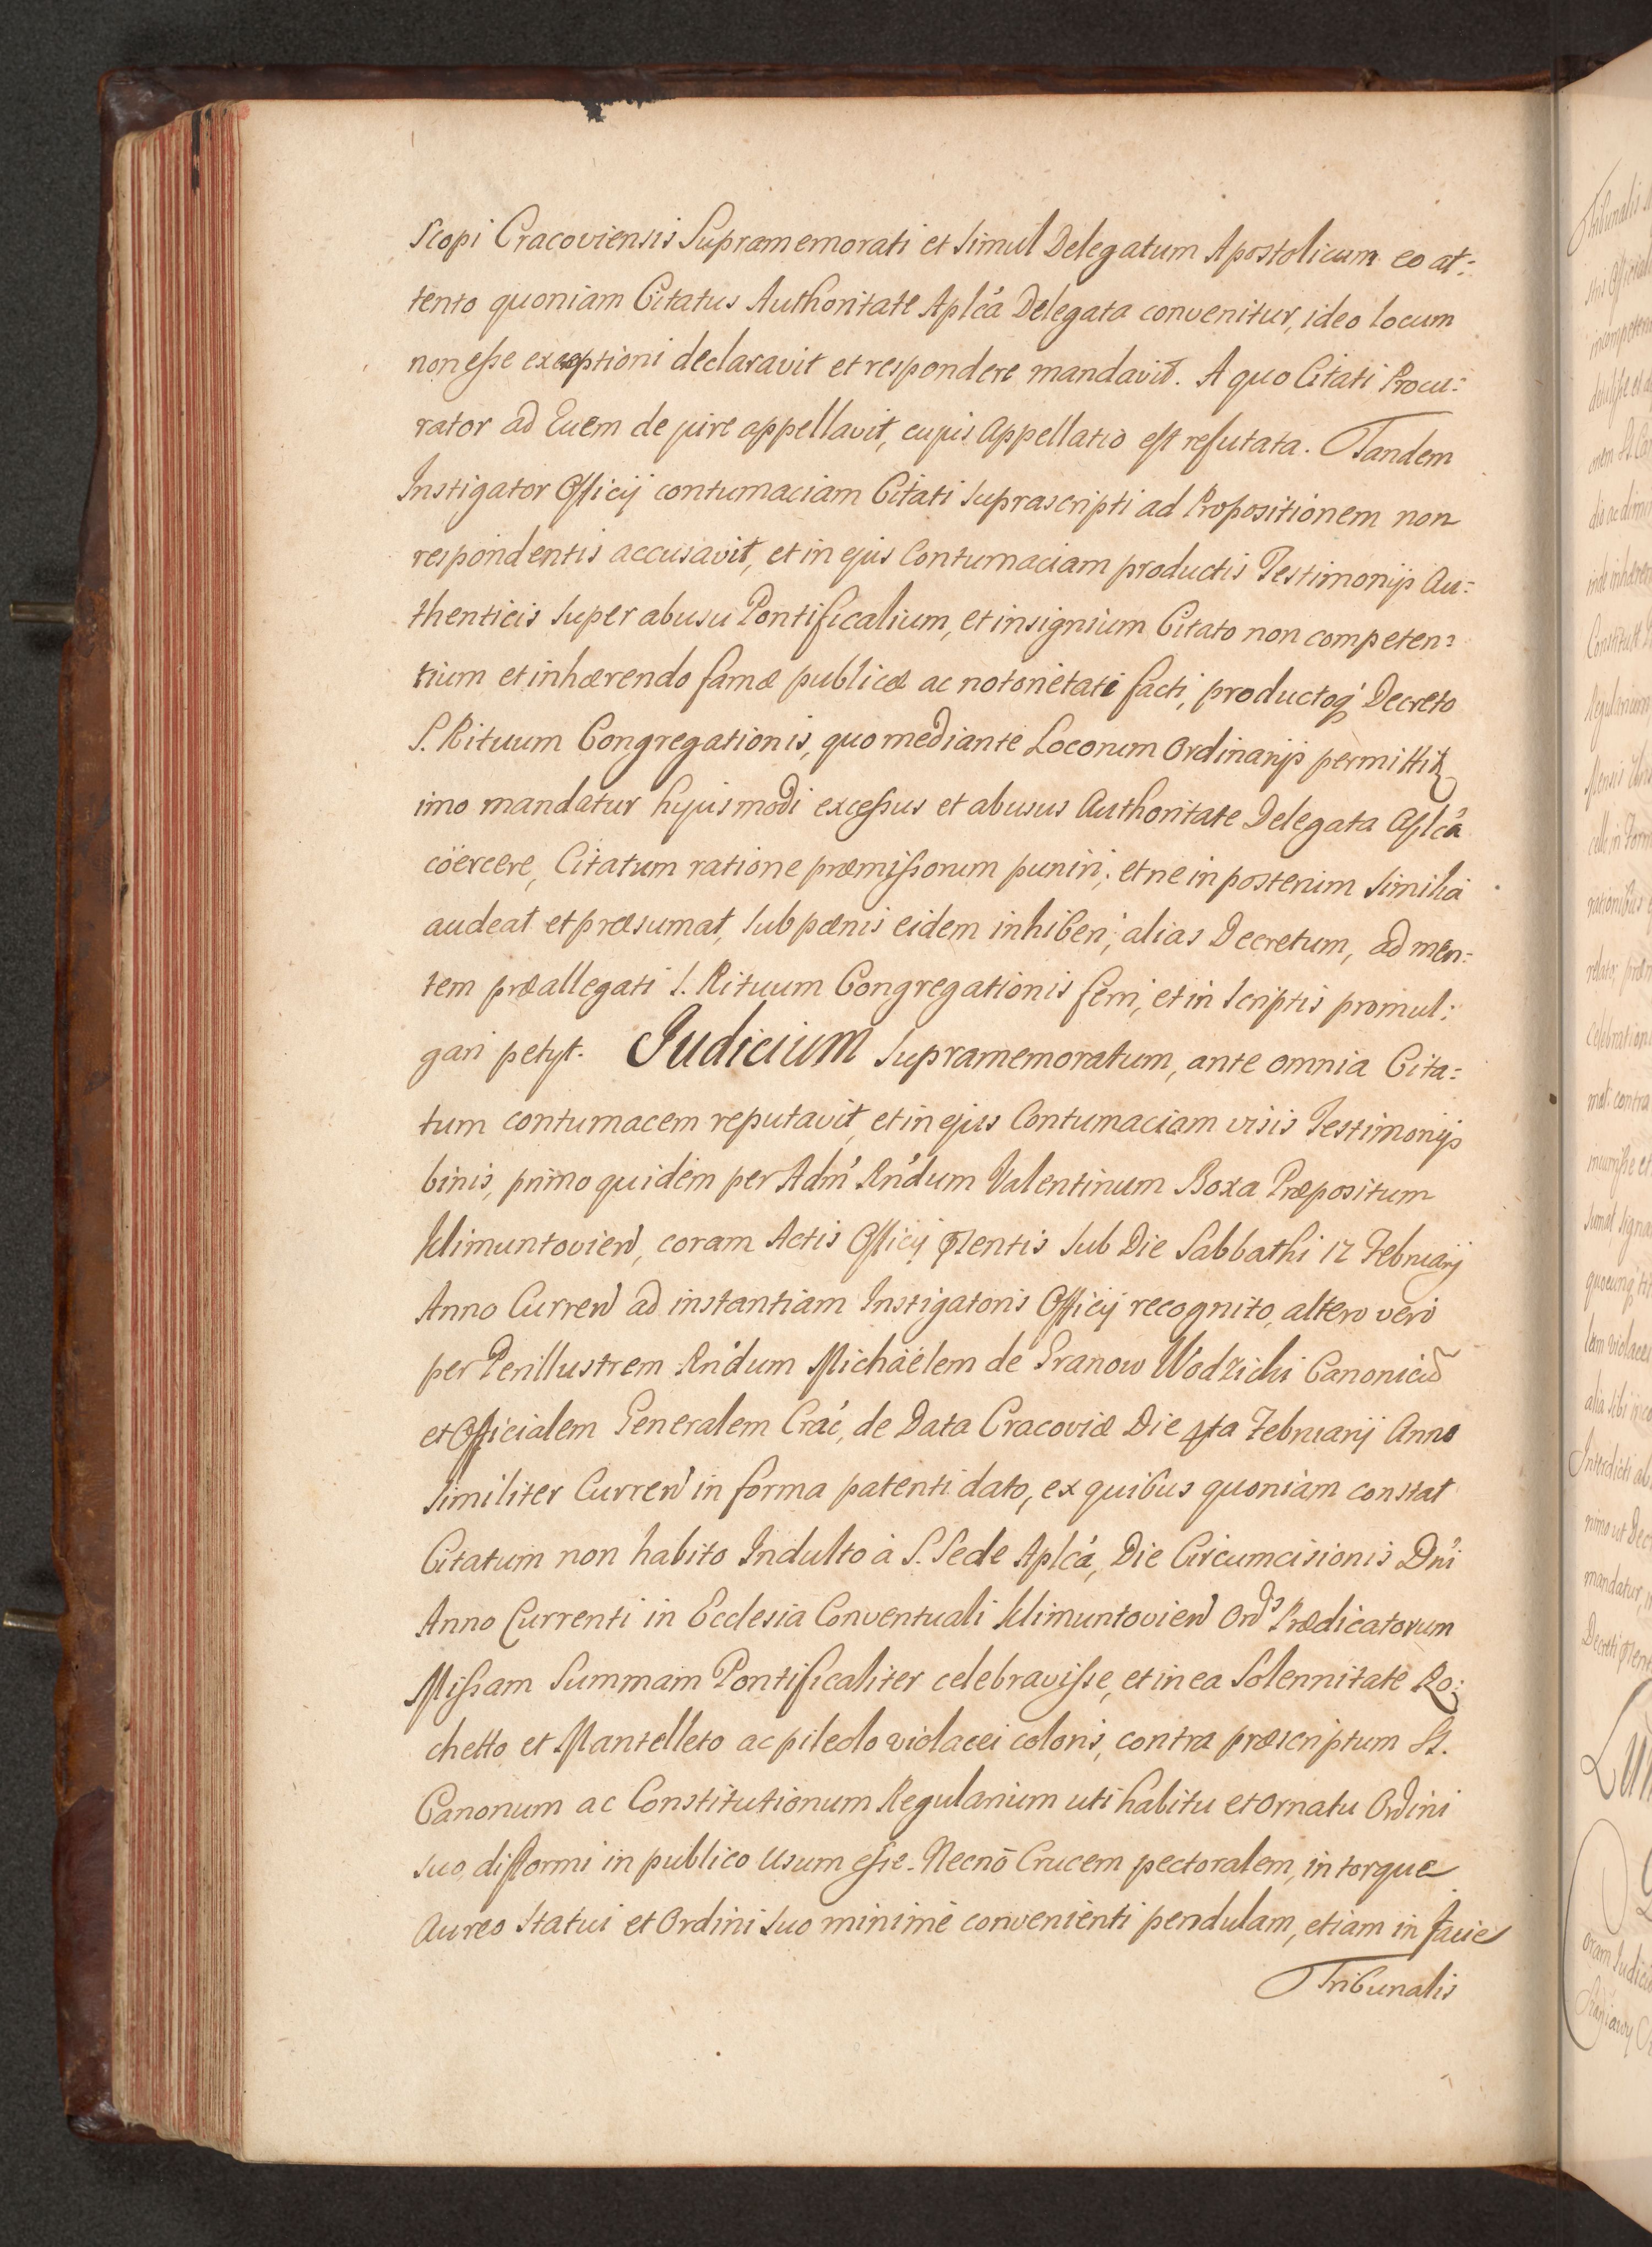 scopi Cracoviensis Supramemorati et simul Delegatum Apostolicum eo at:
tento quoniam Citatus Authoritate Aplcá Delegata convenitur, ideo locum
non esse exceptioni declaravit et respondere mandavit. A quo Citati Procu:
rator ad Euem de jure appellavit, cujus Appellatio est refutata. Tandem
Instigator Officij contumaciam Citati suprascripti ad Propositionem non
respondentis accusavit, et in ejus Contumaciam productis Testimonijs Au=
thenticis super abusu Pontificalium, et insignium Citato non competen=
tium et inhærendo famæ publicæ ac notorietati facti, productoq' Decreto
S. Rituum Congregationis, quo mediante Locorum Ordinarijs permittit
imo mandatur hujusmodi excessus et abusus Authoritate Delegata Aplcá
cöercere, Citatum ratione præmissorum puniri; et ne in posterum similia
audeat et præsumat, sub pænis eidem inhiberi; alias Decretum, ad men:
tem præallegati S. Rituum Congregationis ferri, et in scriptis promul:
gari petyt. Judicium supramemoratum, ante omnia Cita=
tum contumacem reputavit, et in ejus Contumaciam visis Testimonijs
binis, primo quidem per Adm' Rn'dum Valentinum Boxa Præpositum
Klimuntovien, coram Actis Officij pñentis sub Die Sabbathi 12 Februarij
Anno Curren ad instantiam Instigatoris Officij recognito, altero vero
per Perillustrem Rn'dum Michäelem de Granow Wodzicki Canonicũ
et Officialem Generalem Crac', de Data Cracoviæ Die 4ta Februarij Anno
similiter Curren in forma patenti dato, ex quibus quoniam constat
Citatum non habito Indulto à S. Sede Aplcá, Die Circumcisionis Dn'i
Anno Currenti in Ecclesia Conventuali Klimuntovien Ord's Prædicatorum
Missam Summam Pontificaliter celebravisse, et in ea Solennitate Ro:
chetto et Mantelleto ac pileolo violacei coloris, contra præscriptum St.
Canonum ac Constitutionum Regularium uti habitu et ornatu Ordini
suo, difformi in publico Usum esse. Necnō Crucem pectoralem, in torque
Aureo Statui et Ordini suo minimè convenienti pendulam, etiam in facie
Tribunalis